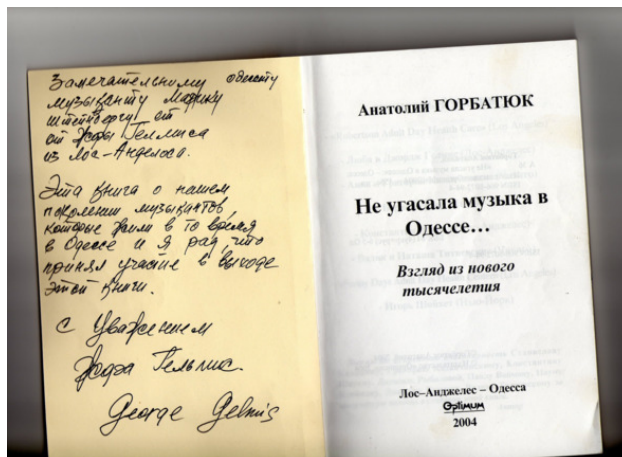 Замечательному одесситу
музыканту Марику
Штейнбергу от
от Жоры Гелмиса
из Лос-Анделоса.
Эта книга о нашем
поколении музыкантов,
которые жили в то время
в Одессе и я рад, что
принял участие в выходе
этой книги.
С уважением
Жора Гельмис.
George Gelmis
Анатолий ГОРБАТЮК
Не угасала музыка в
Одессе…
Взгляд из нового
тысячелетия
Лос–Анджелес – Одесса
Optimum
2004